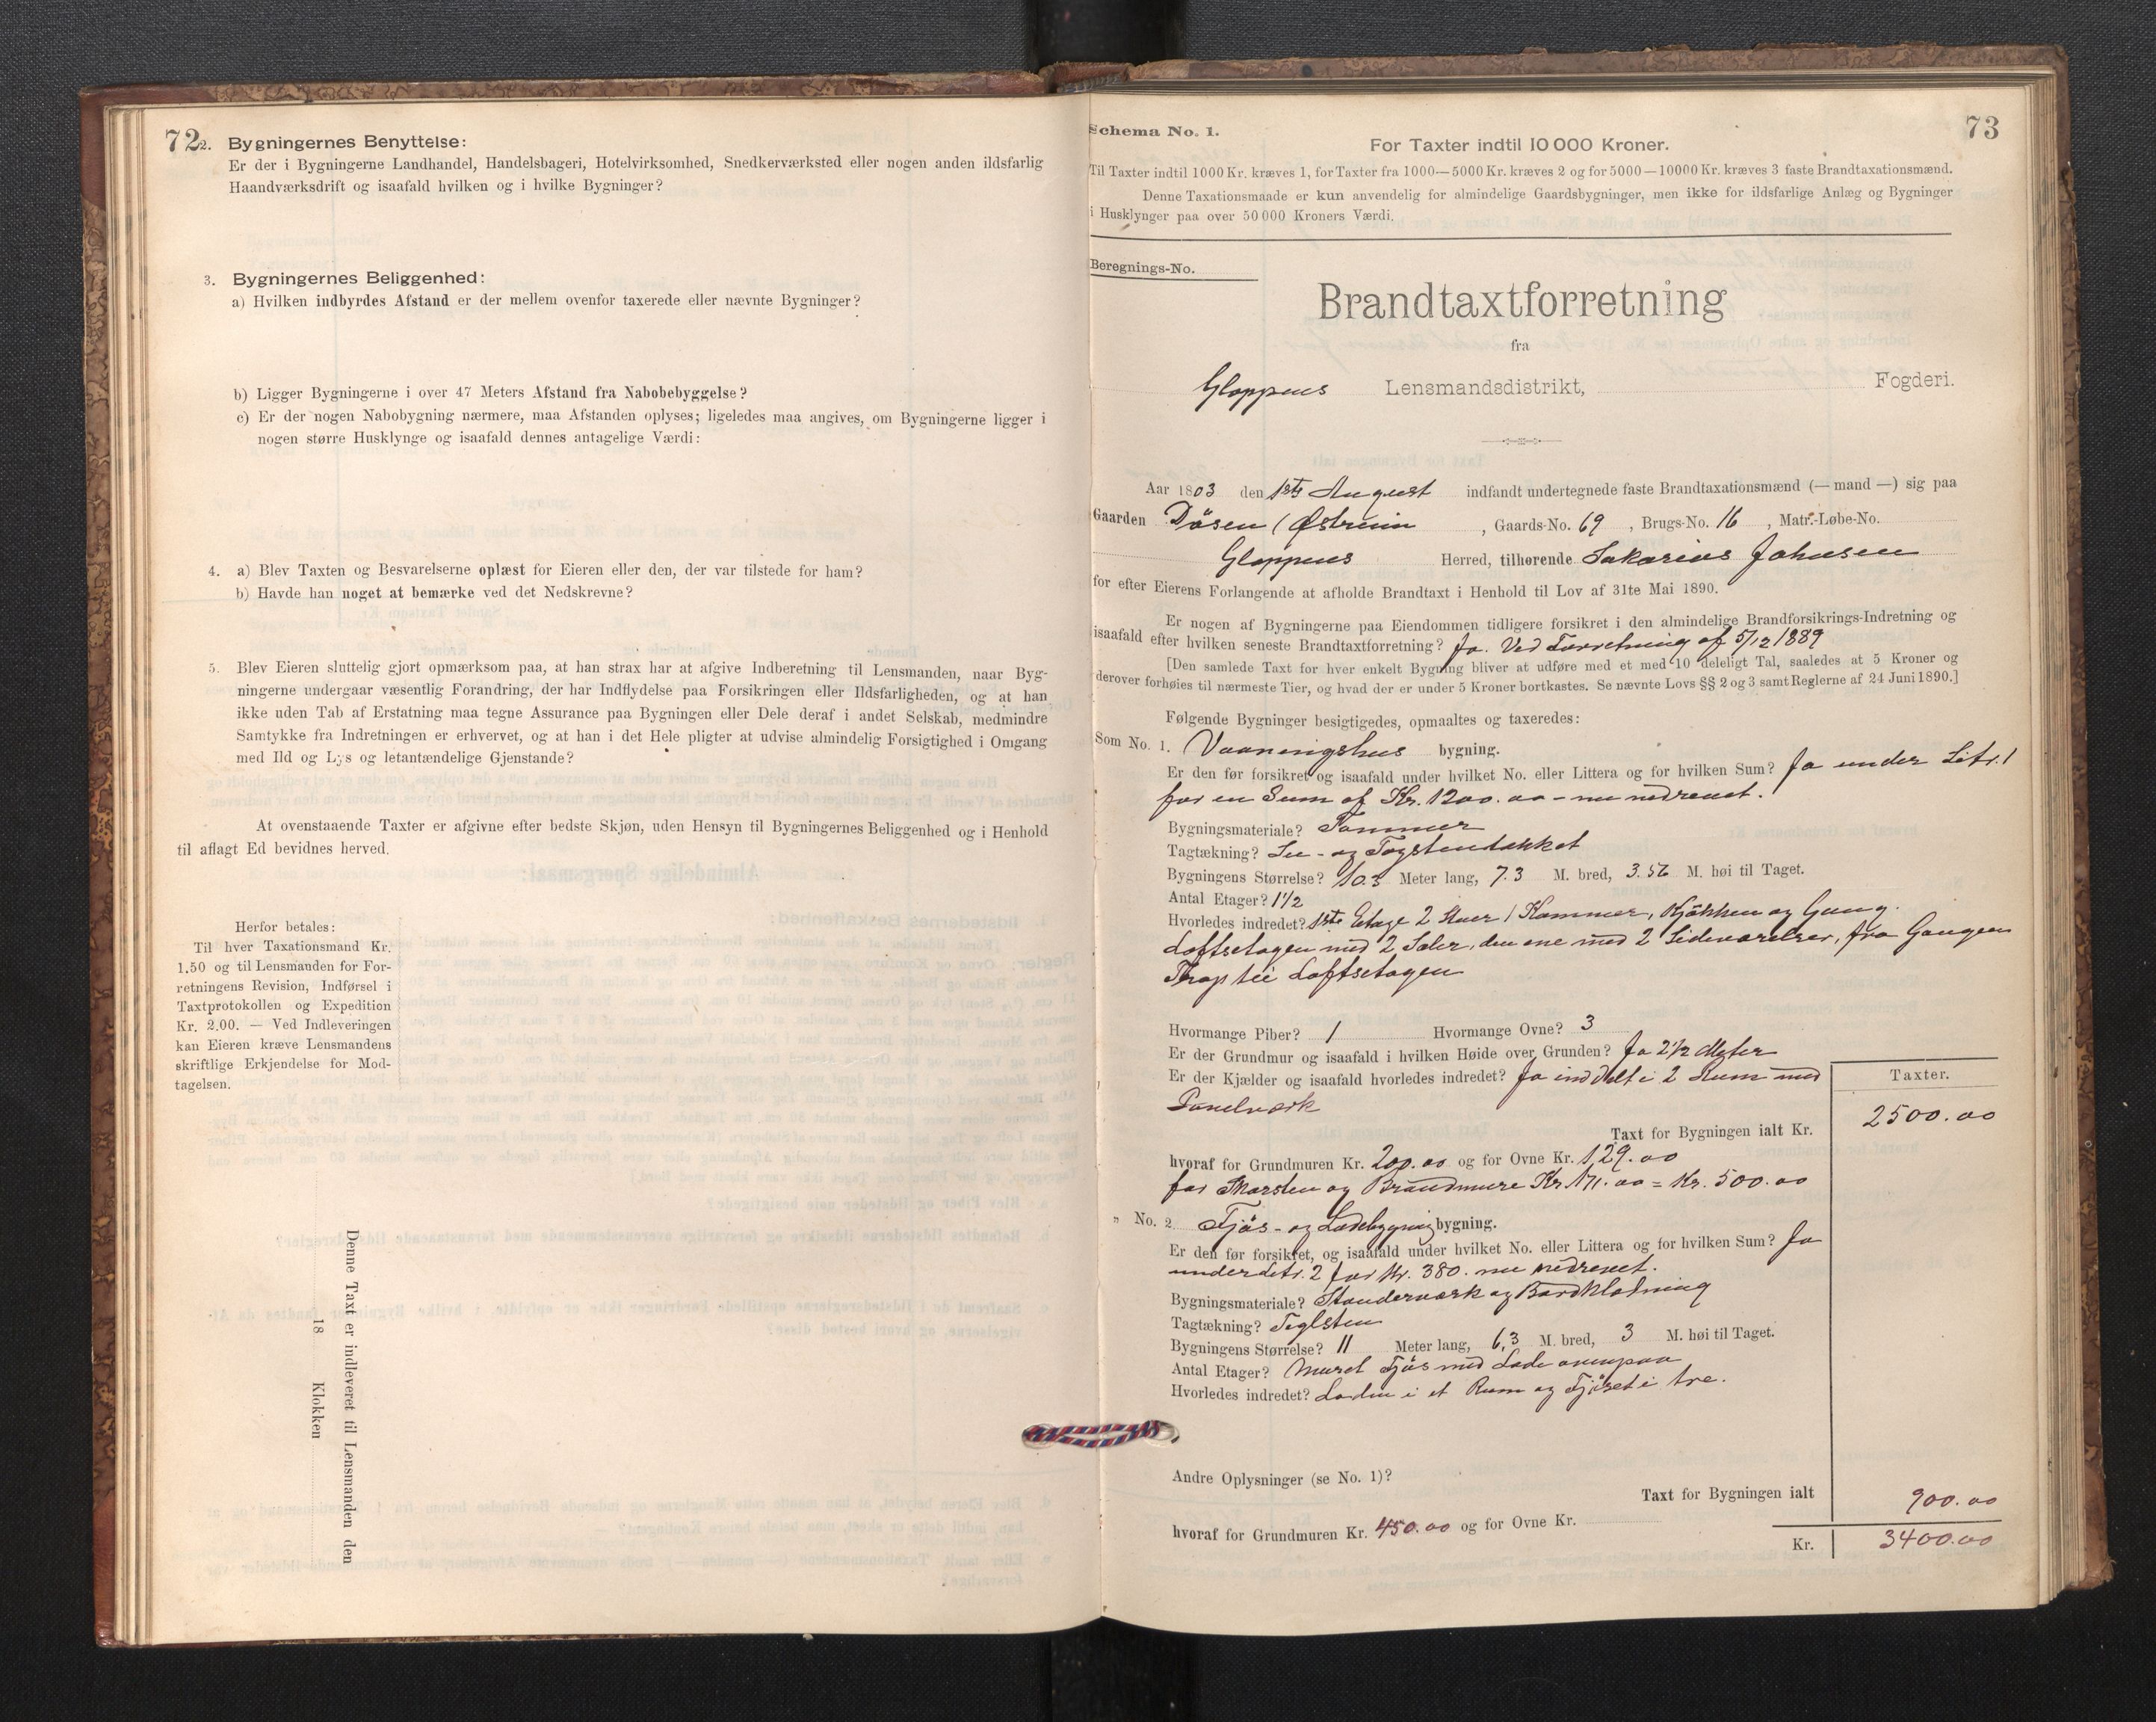 72
2. Bygningernes Benyttelse:
Er der i Bygningerne Landhandel, Handelsbageri, Hotelvirksomhed, Snedkerværksted eller nogen anden ildsfarlig
Haandværksdrift og isaafald hvilken og i hvilke Bygninger?
3. Bygningernes Beliggenhed:
a) Hvilken indbyrdes Afstand er der mellem ovenfor taxerede eller nævnte Bygninger?
b) Ligger Bygningerne i over 47 Meters Afstand fra Nabobebyggelse?
c) Er der nogen Nabobygning nærmere, maa Afstanden oplyses; ligeledes maa angives, om Bygningerne ligger i
nogen større Husklynge og isaafald dennes antagelige Værdi:
4. a) Blev Taxten og Besvarelserne oplæst for Eieren eller den, der var tilstede for ham?
b) Havde han noget at bemærke ved det Nedskrevne?
5. Blev Eieren sluttelig gjort opmærksom paa, at han strax har at afgive Indberetning til Lensmanden, naar Byg-
ningerne undergaar væsentlig Forandring, der har Indflydelse paa Forsikringen eller Ildsfarligheden, og at han
ikke uden Tab af Erstatning maa tegne Assurance paa Bygningen eller Dele deraf i andet Selskab, medmindre
Samtykke fra Indretningen er erhvervet, og at han i det Hele pligter at udvise almindelig Forsigtighed i Omgang
med Ild og Lys og letantændelige Gjenstande?
At ovenstaaende Taxter er afgivne efter bedste Skjøn, uden Hensyn til Bygningernes Beliggenhed og i Henhold
til aflagt Ed bevidnes herved.
Herfor betales:
Til hver Taxationsmand Kr.
1.50 og til Lensmanden for For-
retningens Revision, Indførsel i
Taxtprotokollen og Expedition
Kr. 2.00. — Ved Indleveringen
kan Eieren kræve Lensmandens
skriftlige Erkjendelse for Mod-
tagelsen.
Denne Taxt er indleveret til Lensmanden den
18 Klokken
73
Schema No. 1.
For Taxter indtil 10 000 Kroner.
Til Taxter indtil 1000 Kr. kræves 1, for Taxter fra 1000—5000 Kr. kræves 2 og for 5000—10000 Kr. kræves 3 faste Brandtaxationsmænd.
Denne Taxationsmaade er kun anvendelig for almindelige Gaardsbygninger, men ikke for ildsfarlige Anlæg og Bygninger
i Husklynger paa over 50 000 Kroners Værdi.
Beregnings-No.
Brandtaxtforretning
fra
Gloppens Lensmandsdistrikt, Fogderi.
Aar 1803 den 1ste August indfandt undertegnede faste Brandtaxationsmænd (— mand —) sig paa
Gaarden Døsen / Østreim, Gaards-No. 69, Brugs-No. 16, Matr.-Løbe-No.
Gloppens Herred, tilhørende Sakarias Johnsen
for efter Eierens Forlangende at afholde Brandtaxt i Henhold til Lov af 31te Mai 1890.
Er nogen af Bygningerne paa Eiendommen tidligere forsikret i den almindelige Brandforsikrings-Indretning og
isaafald efter hvilken seneste Brandtaxtforretning? Ja. Ved Forretning af 5/12 1889
[Den samlede Taxt for hver enkelt Bygning bliver at udføre med et med 10 deleligt Tal, saaledes at 5 Kroner og
derover forhøies til nærmeste Tier, og hvad der er under 5 Kroner bortkastes. Se nævnte Lovs §§ 2 og 3 samt Reglerne af 24 Juni 1890.]
Følgende Bygninger besigtigedes, opmaaltes og taxeredes:
Som No. 1. Vaaningshus bygning.
Er den før forsikret og isaafald under hvilket No. eller Littera og for hvilken Sum? Ja under Litr. 1
for en Sum af Kr. 1200.00 – nu nedrevet.
Bygningsmateriale? Tømmer
Tagtækning? Su- og Tagstentækket
Bygningens Størrelse? 10.3 Meter lang, 7.3 M. bred, 3.56 M. høi til Taget.
Antal Etager? 1 1/2
Hvorledes indredet? 1ste Etage 2 Stuer 1 Kammer, Kjøkken og Gang.
Loftsetagen med 2 Saler, den ene med 2 Sideværelser, fra Gangen
Trap til Loftsetagen
Hvormange Piber? 1 Hvormange Ovne? 3
Er der Grundmur og isaafald i hvilken Høide over Grunden? Ja 2 1/2 Meter
Er der Kjælder og isaafald hvorledes indredet? Ja inddelt i 2 Rum med
Panelværk
Taxter.
Taxt for Bygningen ialt Kr. 2500.00
hvoraf for Grundmuren Kr. 200.00 og for Ovne Kr. 129.00
for Skorsten og Brandmure Kr. 171.00 = Kr. 500.00
" No. 2 Fjøs- og Ladebygning bygning.
Er den før forsikret, og isaafald under hvilket No. eller Littera og for hvilken Sum? Ja
under Litr. 2 for Kr. 380. nu nedrevet.
Bygningsmateriale? Standerværk og Bordklædning
Tagtækning? Teglsten
Bygningens Størrelse? 11 Meter lang, 6,3 M. bred, 3 M. høi til Taget.
Antal Etager? Muret Fjøs med Lade ovenpaa
Hvorledes indredet? Laden i et Rum og Fjøset i tre.
Andre Oplysninger (se No. 1)?
Taxt for Bygningen ialt 900.00
hvoraf for Grundmuren Kr. 450.00 og for Ovne Kr.
Kr. 3400.00